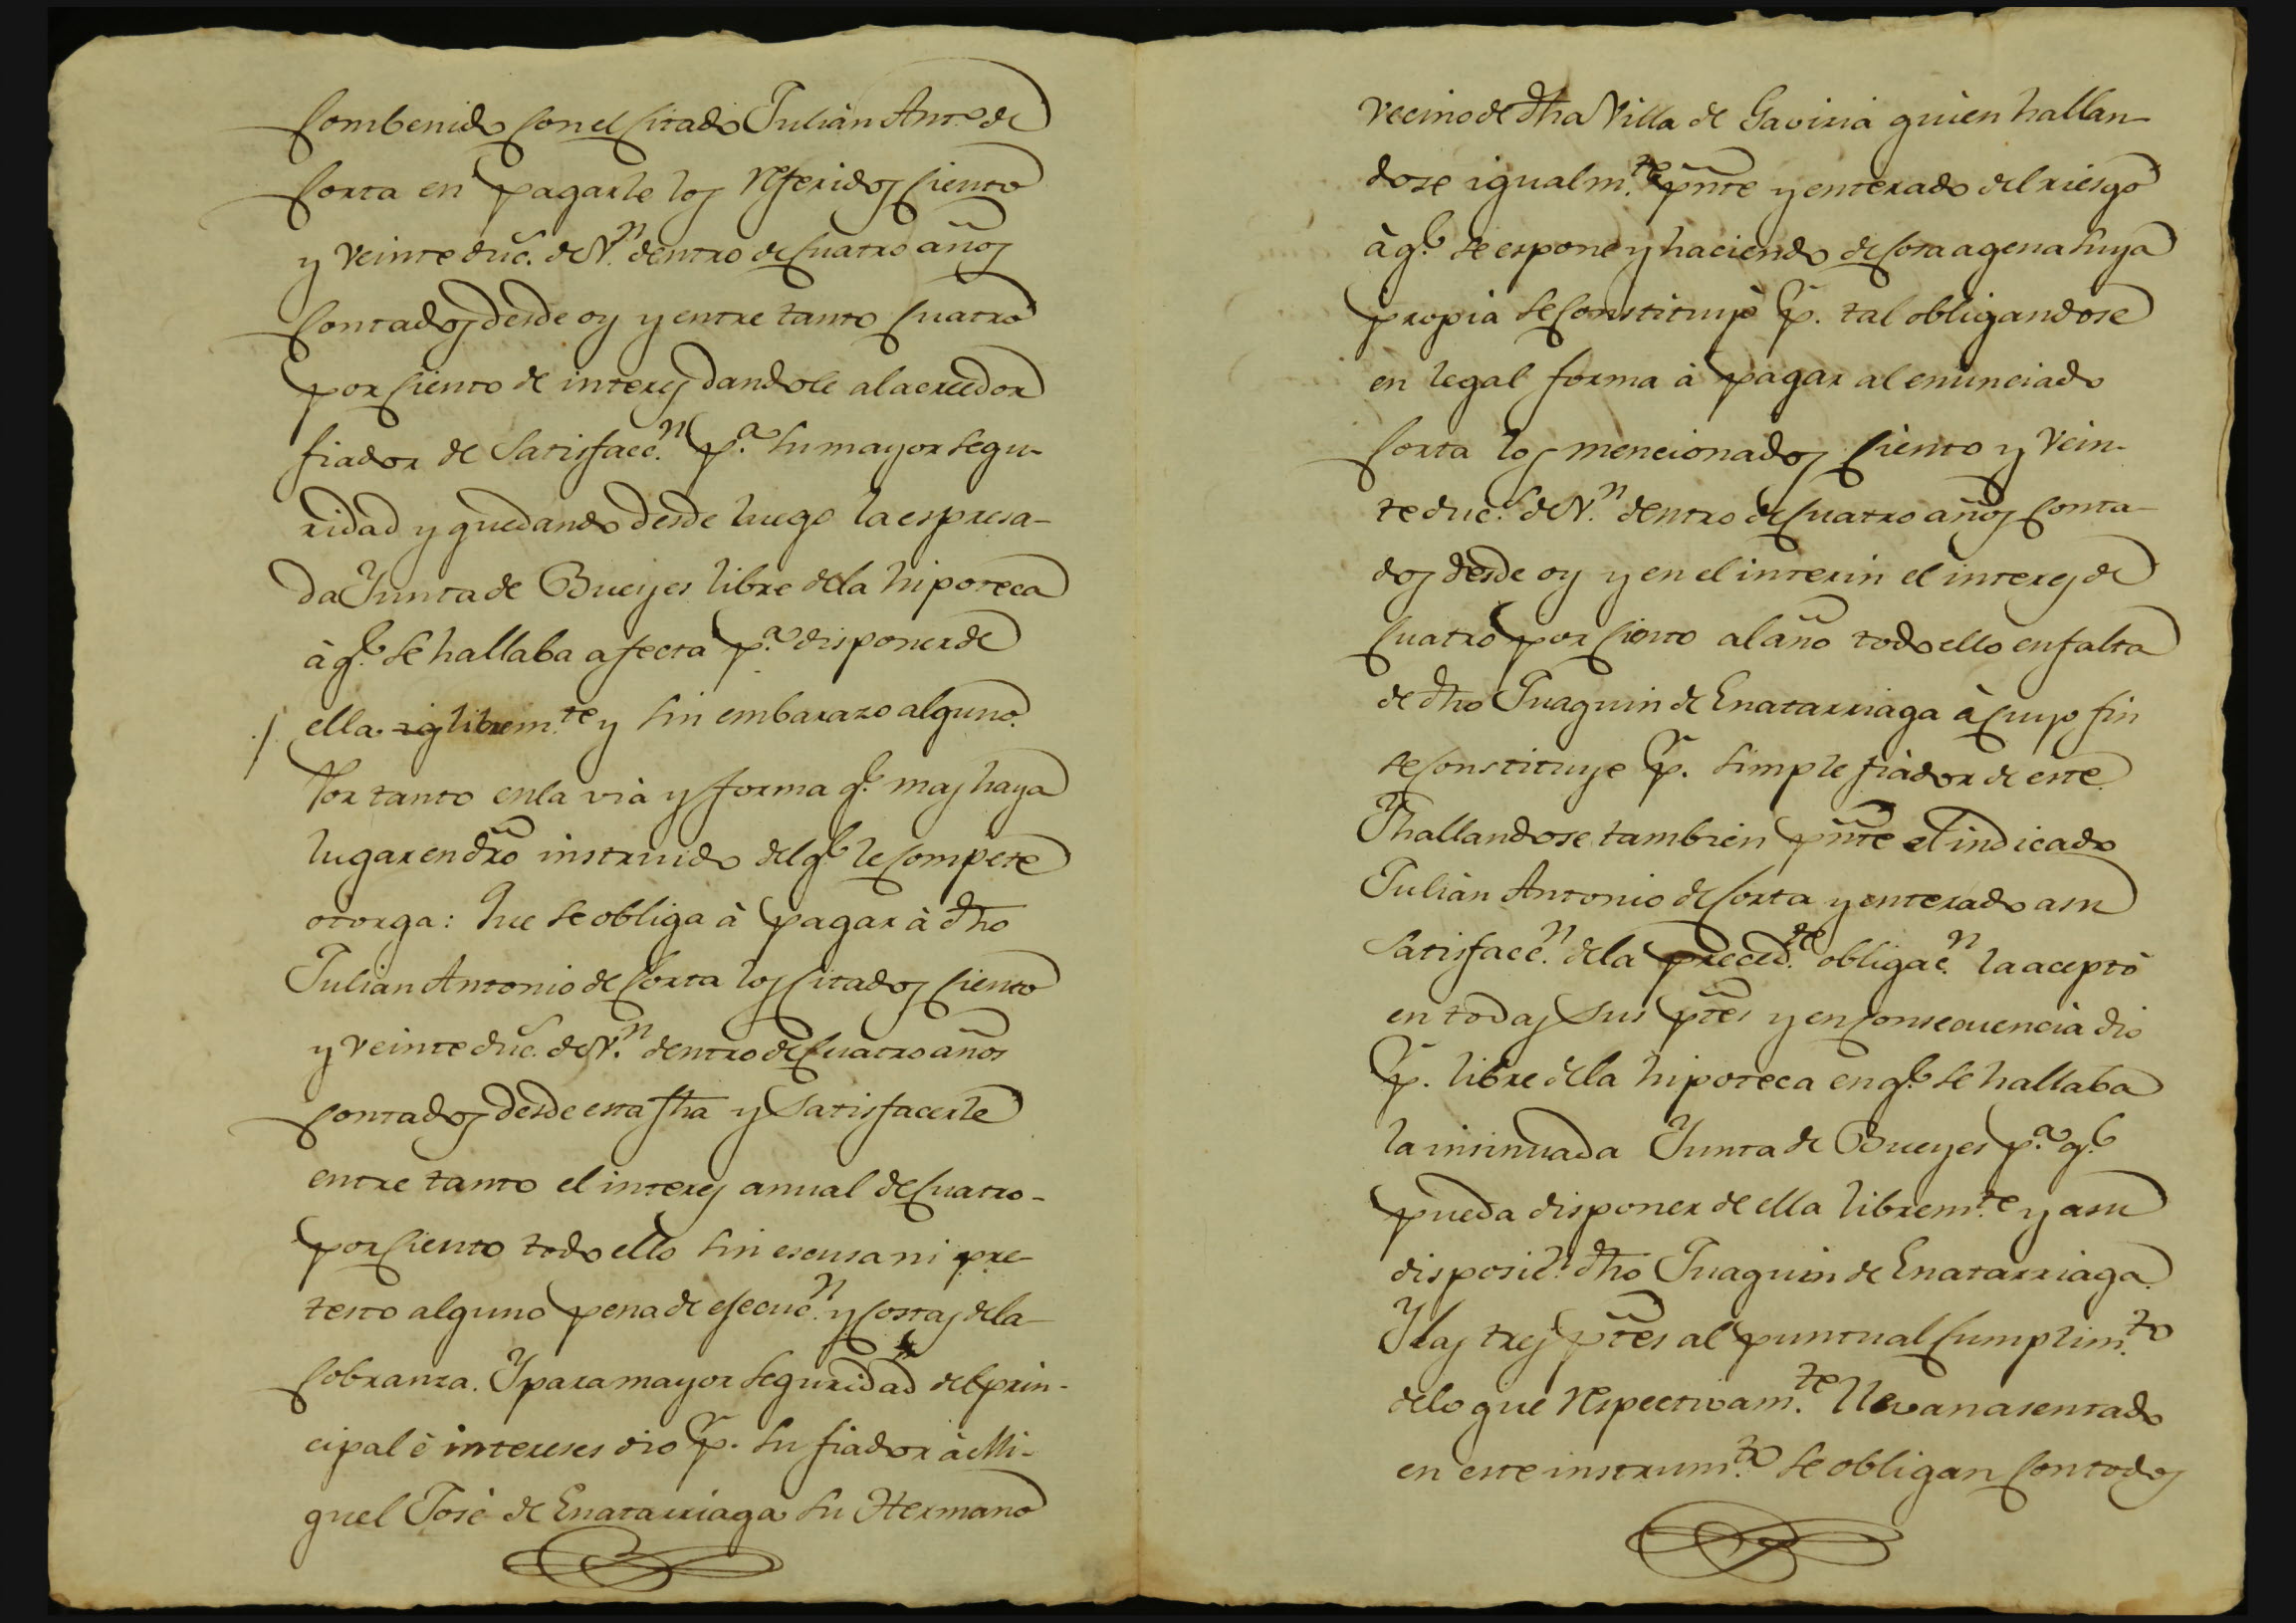 Combenido con el citado Julián Ant.º de
Corta en pagarle los referidos ciento
y veinte duc.s de V.n dentro de cuatro años
contados desde oy y entre tanto cuatro
por ciento de interes dandole al acreedor
fiador de satisfacc.n p.a su mayor segu-
ridad y quedando desde luego la espresa-
da Junta de Bueyes libre de la hipoteca
à q.e se hallaba afecta p.a disponer de
ella librem.te y sin embarazo alguno.
Por tanto en la vià y forma q.e mas haya
lugar en dr̃o instruido del q.e le compete
otorga: Que se obliga à pagar à dho
Julian Antonio de Corta los citados ciento
y veinte duc.s de V.n dentro de cuatro años
contados desde esta fha y satisfacerle
entre tanto el interes anual de cuatro-
por ciento todo ello sin escusa ni pre-
testo alguno pena de ejecuc.n y costas de la
cobranza. Y para mayor seguridad del prin-
cipal è intereses dio p.r su fiador à Mi-
guel José de Enatarriaga su Hermano
vecino de dha Villa de Gaviria quien hallan-
dose igualm.te pñte y enterado del riesgo
à q.e se espone y haciendo de cosa agena suya
propia se constituyò p.r tal obligandose
en legal forma à pagar al enunciado
Corta los mencionados ciento y vein-
te duc.s de V.n dentro de cuatro años conta-
dos desde oy y en el interin el interes de
cuatro por ciento al año todo ello en falta
de dho Juaquin de Enatarriaga à cuyo fin
se constituye p.r simple fiador de este.
Y hallandose tambien pñte el indicado
Julián Antonio de Corta y enterado a su
satisfacc.n de la preced.te obligac.n la aceptò
en todas sus ptẽs y en consecuencia dio
p.r libre de la hipoteca en q.e se hallaba
la insinuada Junta de Bueyes p.a q.e
pueda disponer de ella librem.te y a su
disposic.n dho Juaquin de Enatarriaga.
Y las tres ptẽs al puntual cumplim.to
de lo que respectivam.te llevan asentado
en este instrum.to se obligan con todos